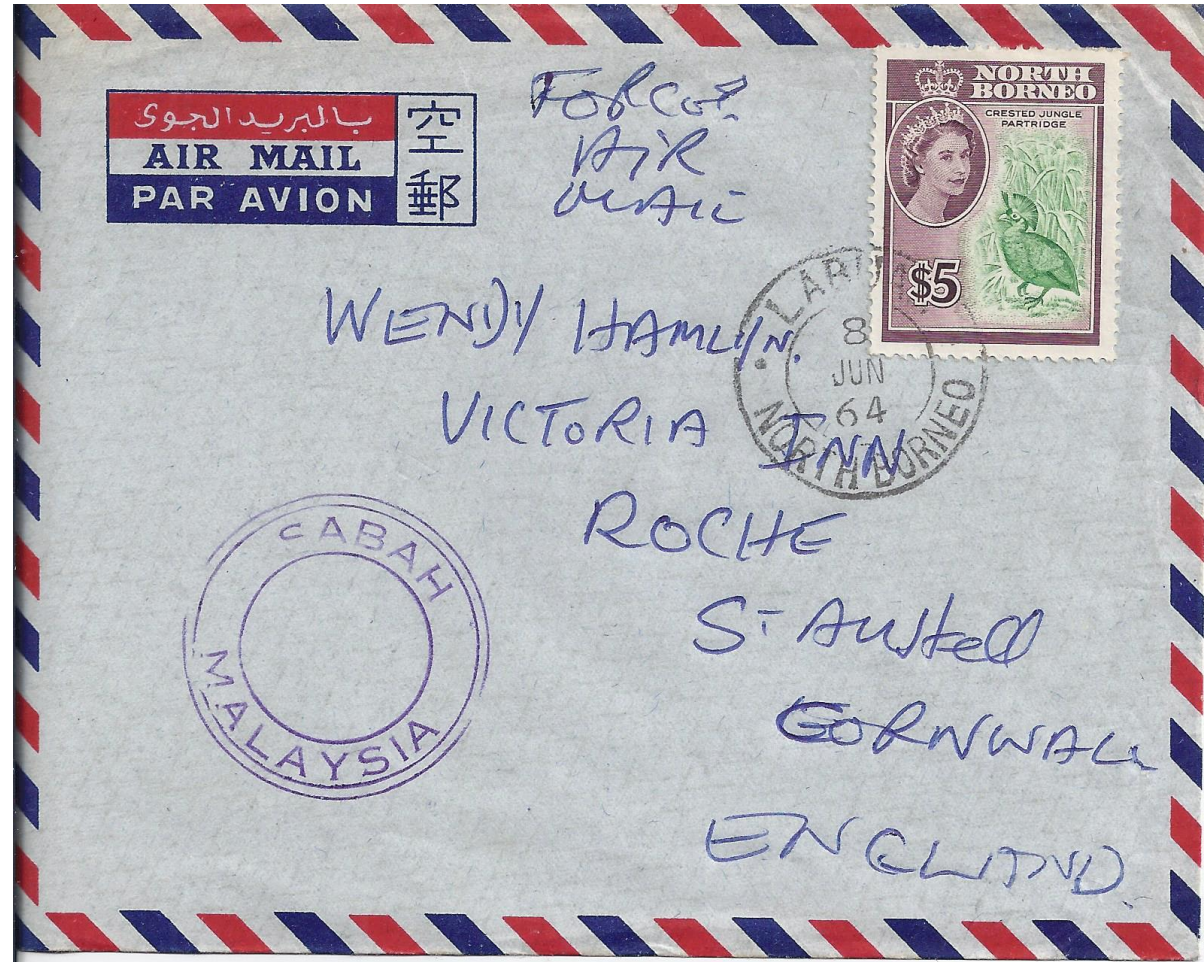 بالبريد الجوى
AIR MAIL
PAR AVION
空
郵
FORCES
AIR
MAIL
NORTH
BORNEO
CRESTED JUNGLE
PARTRIDGE
$5
8
JUN
64
NORTH BORNEO
WENDY HAMLYN.
VICTORIA INN
ROCHE
St Austell
CORNWALL
ENGLAND.
SABAH
MALAYSIA